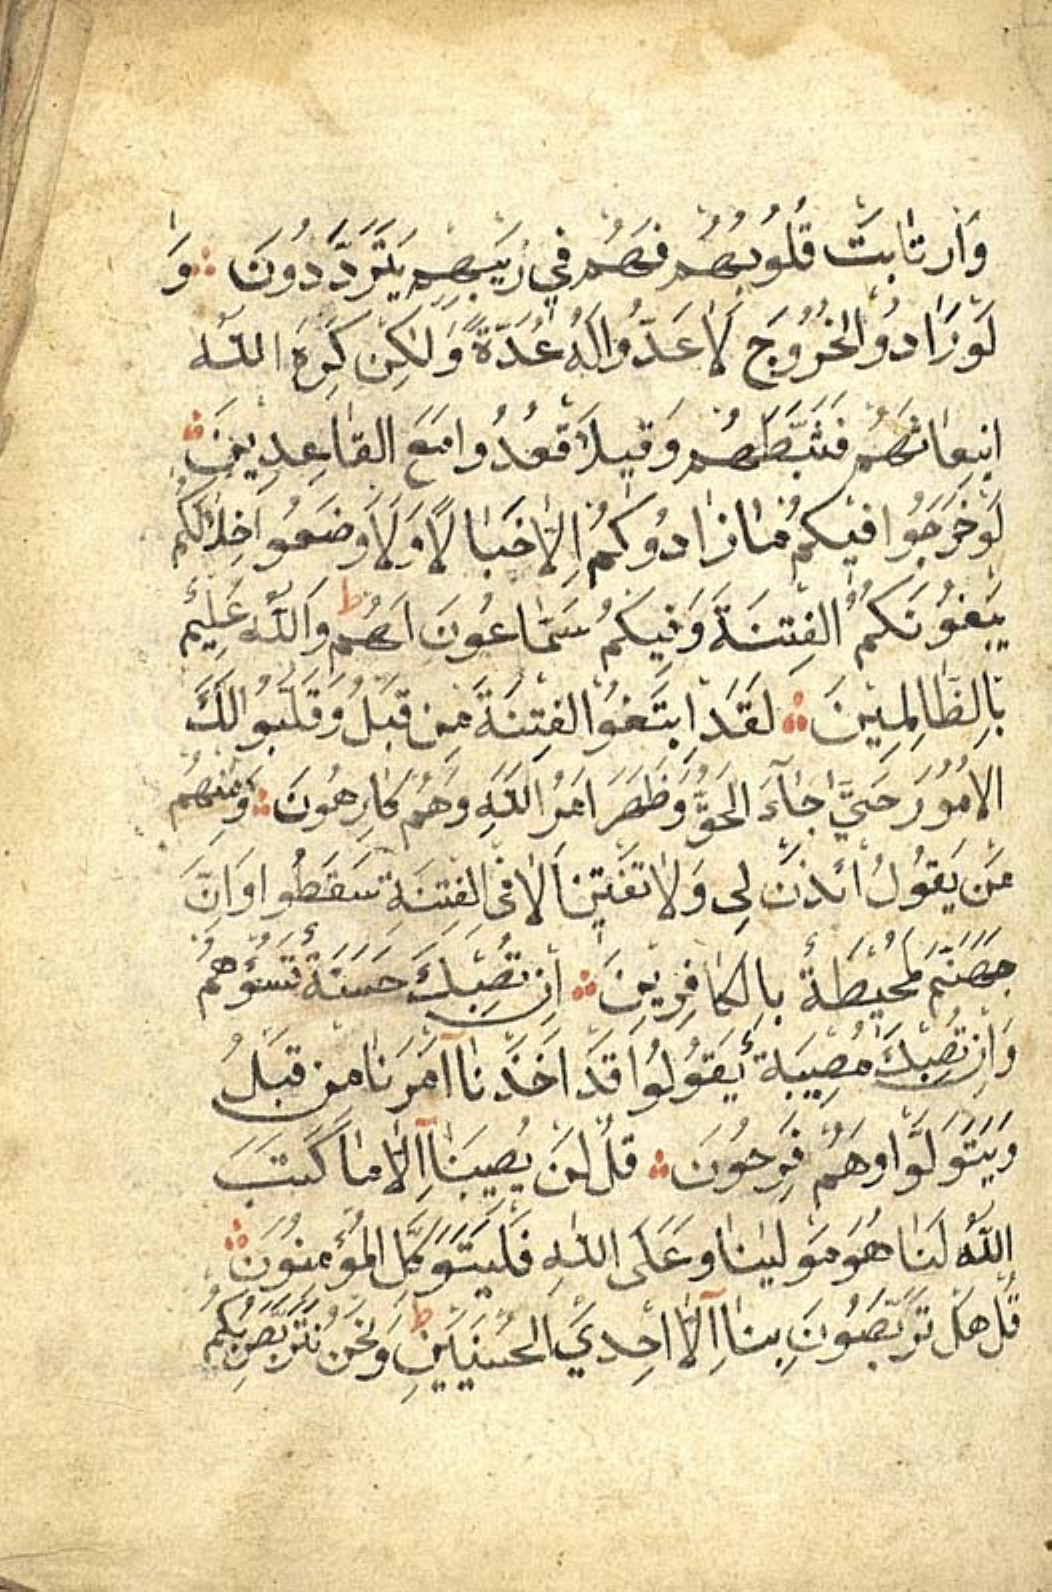 وَارتَابَتْ قُلُوبُهُمْ فَهُمْ فِي رَيْبِهِمْ يَتَرَدَّدُونَ ۞ وَ
لَوْ رَادُوا الْخُرُوجَ لَاَعَدُّوا لَهُ عُدَّةً وَلٰكِنْ كَرِهَ اللّٰه
انبِعَاثَهُمْ فَثَبَّطَهُمْ وَقِيلَ اقْعُدُوا مَعَ الْقَاعِدِينَ ۞
لَوْ خَرَجُوا فِيكُمْ مَا زَادُوكُمْ اِلَّا خَبَالًا وَلَاَوْضَعُوا خِلَالَكُمْ
يَبْغُونَكُمُ الْفِتْنَةَ وَفِيكُمْ سَمَّاعُونَ لَهُمْ ط وَاللّٰهُ عَلِيمٌ
بِالظَّالِمِينَ ۞ لَقَدِ ابْتَغَوُا الْفِتْنَةَ مِنْ قَبْلُ وَقَلَّبُوا لَكَ
الْاُمُورَ حَتّٰي جَآءَ الْحَقُّ وَظَهَرَ اَمْرُ اللّٰهِ وَهُمْ كَارِهُونَ ۞ وَمِنْهُمْ
مَنْ يَقُولُ ائْذَنْ لِي وَلَا تَفْتِنِّي اَلَا فِي الْفِتْنَةِ سَقَطُوا وَاِنَّ
جَهَنَّمَ لَمُحِيطَةٌ بِالْكَافِرِينَ ۞ اِنْ تُصِبْكَ حَسَنَةٌ تَسُؤْهُمْ
وَاِنْ تُصِبْكَ مُصِيبَةٌ يَقُولُوا قَدْ اَخَذْنَا آمْرَنَا مِنْ قَبْلُ
وَيَتَوَلَّوْا وَهُمْ فَرِحُونَ ۞ قُلْ لَنْ يُصِيبَنَا آِلَّا مَا كَتَبَ
اللّٰهُ لَنَا هُوَ مَوْلٰينَا وَعَلَى اللّٰهِ فَلْيَتَوَكَّلِ الْمُؤْمِنُونَ ۞
قُلْ هَلْ تَرَبَّصُونَ بِنَا آِلَّا اِحْدَي الْحُسْنَيَيْنِ ط وَنَحْنُ نَتَرَبَّصُ بِكُمْ